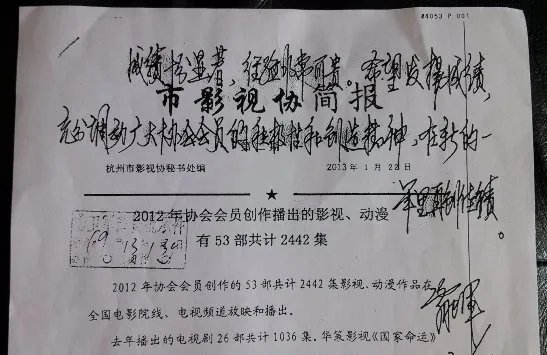 84053 P 001
成绩十分显著，经验非常可贵。希望发扬成绩，
市影视协简报
充分调动广大协会会员的积极性和创造精神，在新的一
杭州市影视协秘书处编 2013年1月22日
年里再创佳绩
2012年协会会员创作播出的影视、动漫
有53部共计2442集
69 13 1 30
2012年协会会员创作的53部共计2442集影视、动漫作品在
全国电影院线、电视频道放映和播出。
去年播出的电视剧26部共计1036集。华策影视《国家命运》